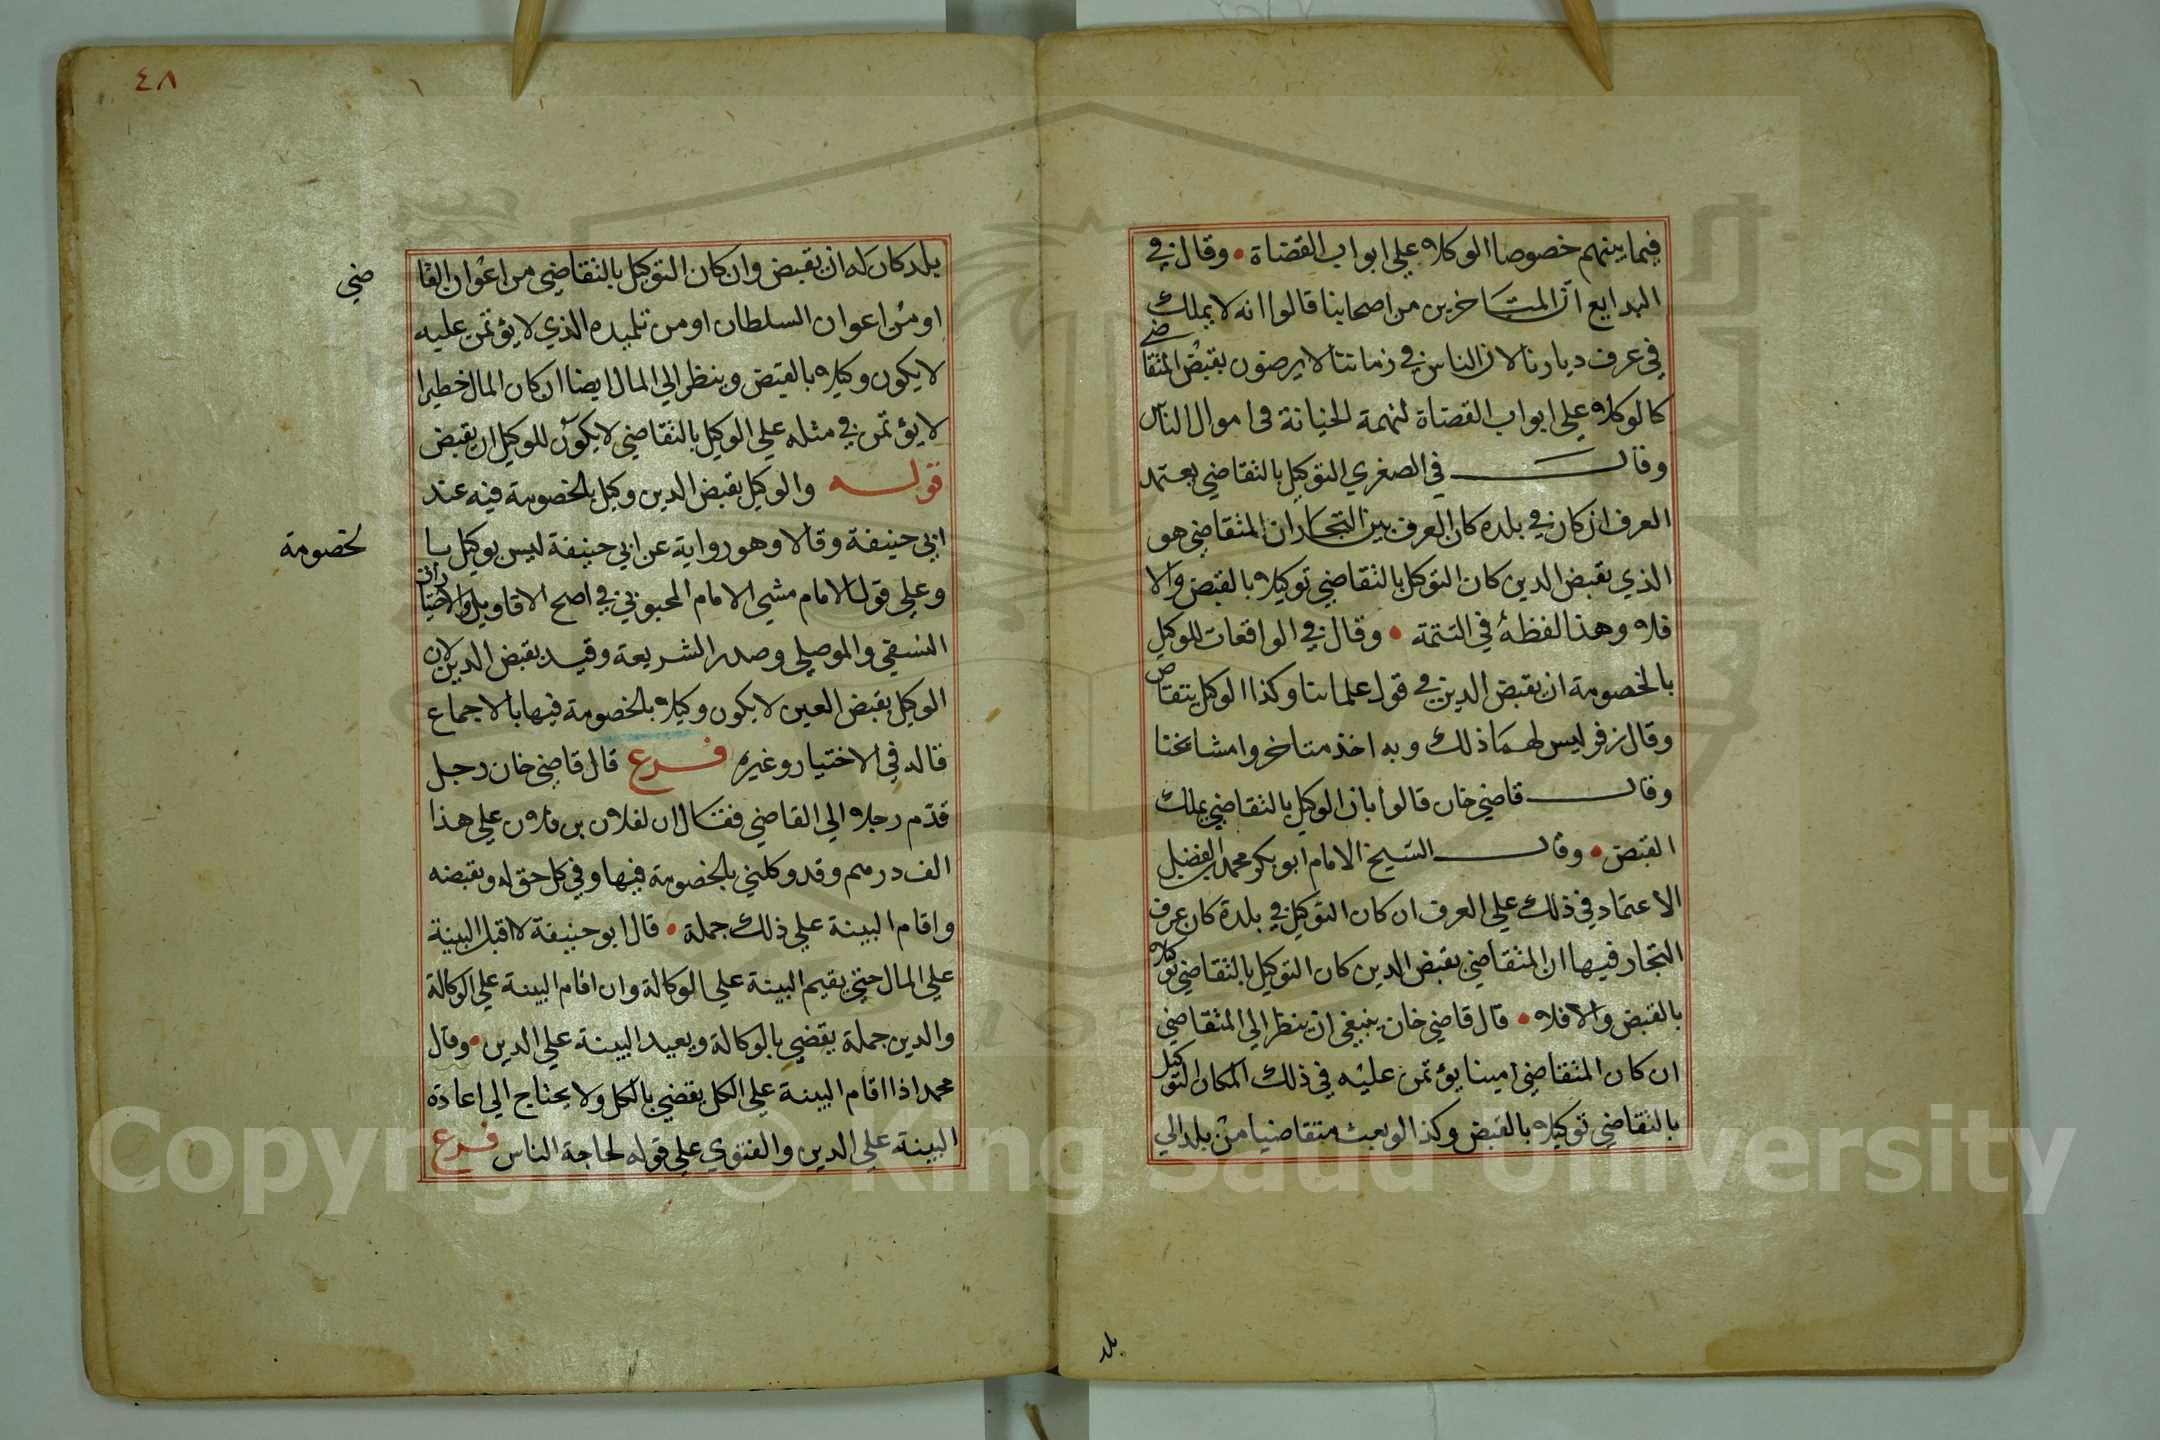 فيما بينهم خصوصا الوكلاء علي ابواب القضاة • وقال في
البدايع ان المتاخرين من اصحابنا قالوا انه لا يملك
في عرف ديارنا لان الناس في زماننا لا يرضون بقبض المتقاضي
كالوكلاء علي ابواب القضاة لتهمة الخيانة في اموال الناس
وقال في الصغري التوكيل بالتقاضي يعتمد
العرف ان كان في بلده كان العرف بين التجار ان المتقاضي هو
الذي يقبض الدين كان التوكل بالتقاضي توكيلا بالقبض والا
فلا وهذا لفظة في التتمة • وقال في الواقعات للوكيل
بالخصومة ان يقبض الدين في قول علماننا وكذا الوكيل يتقاض
وقال زفر ليس لهما ذلك وبه اخذ متاخروا مشائخنا
وقال قاضي خان قالوا بان الوكيل بالتقاضي يملك
القبض • وقال الشيخ الامام ابو بكر محمد ابن الفضيل
الاعتماد في ذلك علي العرف ان كان التوكيل في بلدة كان عرف
التجار فيها ان المتقاضي يقبض الدين كان التوكيل بالتقاضي توكيلا
بالقبض والا فلا • قال قاضي خان ينبغي ان ينظر الي المتقاضي
ان كان المتقاضي امينا يؤتمن عليه في ذلك المكان التوكيل
بالتقاضي توكيلا بالقبض وكذا لو بعث متقاضيا من بلد الي
بلد
٤٨
بلد كان له ان يقبض وان كان التوكيل بالتقاضي من اعوان القا
ضي
او من اعوان السلطان او من تلميده الذي لا يؤتمن عليه
لا يكون وكيلا بالقبض وينظر الي المال ايضا ان كان المال خطيرا
لا يؤتمن في مثله علي الوكيل بالتقاضي لا يكون للوكيل ان يقبض
قوله والوكيل بقبض الدين وكيل بالخصومة فيه عند
ابي حنيفة وقالا وهو رواية عن ابي حنيفة ليس بوكيل با
لخصومة
وعلي قول الامام مشي الامام المحبوبي في اصح الاقاويل والاختيارات
النسفي والموصلي وصدر الشريعة وقيد بقبض الدين لان
الوكيل بقبض العين لا يكون وكيلا بالخصومة فيها بالاجماع
قاله في الاختيار وغيره فرع قال قاضي خان رجل
قدم رجلا الي القاضي فقال ان لفلان بن فلان علي هذا
الف درهم وقد وكلني بالخصومة فيها وفي كل حق له وبقبضه
واقام البينة علي ذلك جملة • قال ابو حنيفة لا اقبل البينة
علي المال حتي يقيم البينة علي الوكالة وان اقام البينة علي الوكالة
والدين جملة يقضي بالوكالة ويعيد البينة علي الدين • وقال
محمد اذا اقام البينة علي الكل يقضي بالكل ولا يحتاج الي اعادة
البينة علي الدين والفتوي علي قوله لحاجة الناس فرع
Copyright © King Saud University